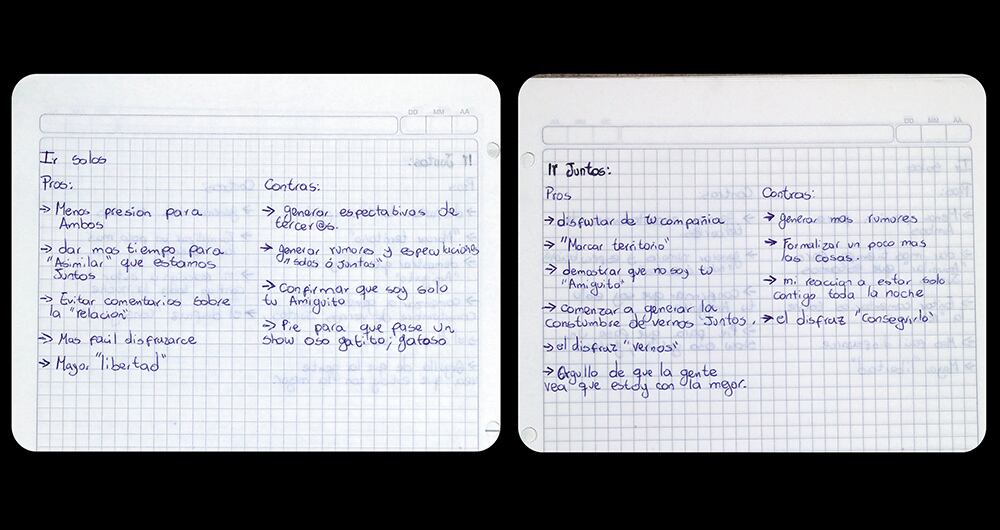 DD MM AA
Ir solos
Pros:
→ Menos presion para
Ambos
→ dar mas tiempo para
"Asimilar" que estamos
Juntos
→ Evitar comentarios sobre
la "relacion"
→ Mas facil disfrazarce
→ Mayor "libertad"
Contras:
→ generar espectativas de
tercer@s.
→ generar rumores y especulaciones
"solos ó Juntos"
→ Confirmar que soy solo
tu Amiguito
→ Pie para que pase un
show oso gatito; gatoso
DD MM AA
Ir Juntos:
Pros
→ disfrutar de tu compañia
→ "Marcar territorio"
→ demostrar que no soy tu
"Amiguito"
→ comenzar a generar la
constumbre de vernos Juntos.
→ el disfraz "vernos"
→ Orgullo de que la gente
vea que estoy con la mejor.
Contras:
→ generar mas rumores
→ Formalizar un poco mas
las cosas.
→ mi reaccion a estar solo
contigo toda la noche
→ el disfraz "conseguirlo"